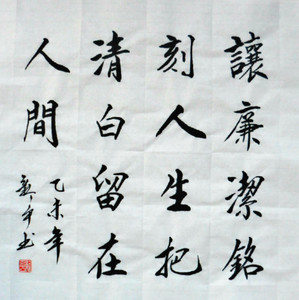 讓廉潔銘
刻人生把
清白留在
人間
乙未年